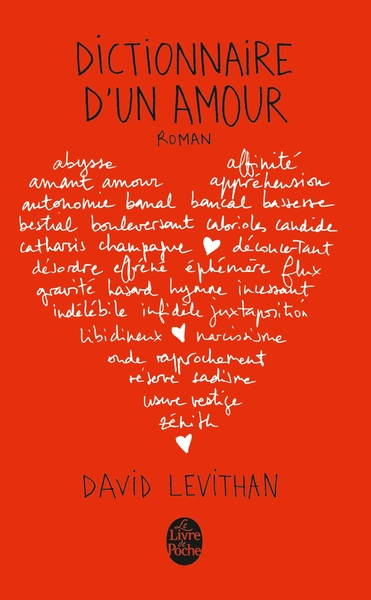 DICTIONNAIRE
D'UN AMOUR
ROMAN
abysse affinité
amant amour appréhension
autonomie banal bancal basserre
bestial bouleversant cabrioles candide
catharsis champagne déconcertant
désordre effréné éphémère flux
gravité hasard hymne incessant
indélébile infidèle juxtaposition
libidineux narcissisme
onde rapprochement
réserve sadisme
usure vestige
zénith
DAVID LEVITHAN
Le
Livre
de
Poche